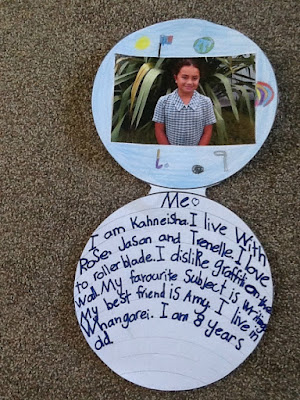 Me
I am Kahneisha. I live with
Rose, Jason and Trenelle. I love
to rollerblade. I dislike graffiti on the
wall. My favourite Subject is Writing
My best friend is Amy. I live in
Whangarei. I am 8 years
old